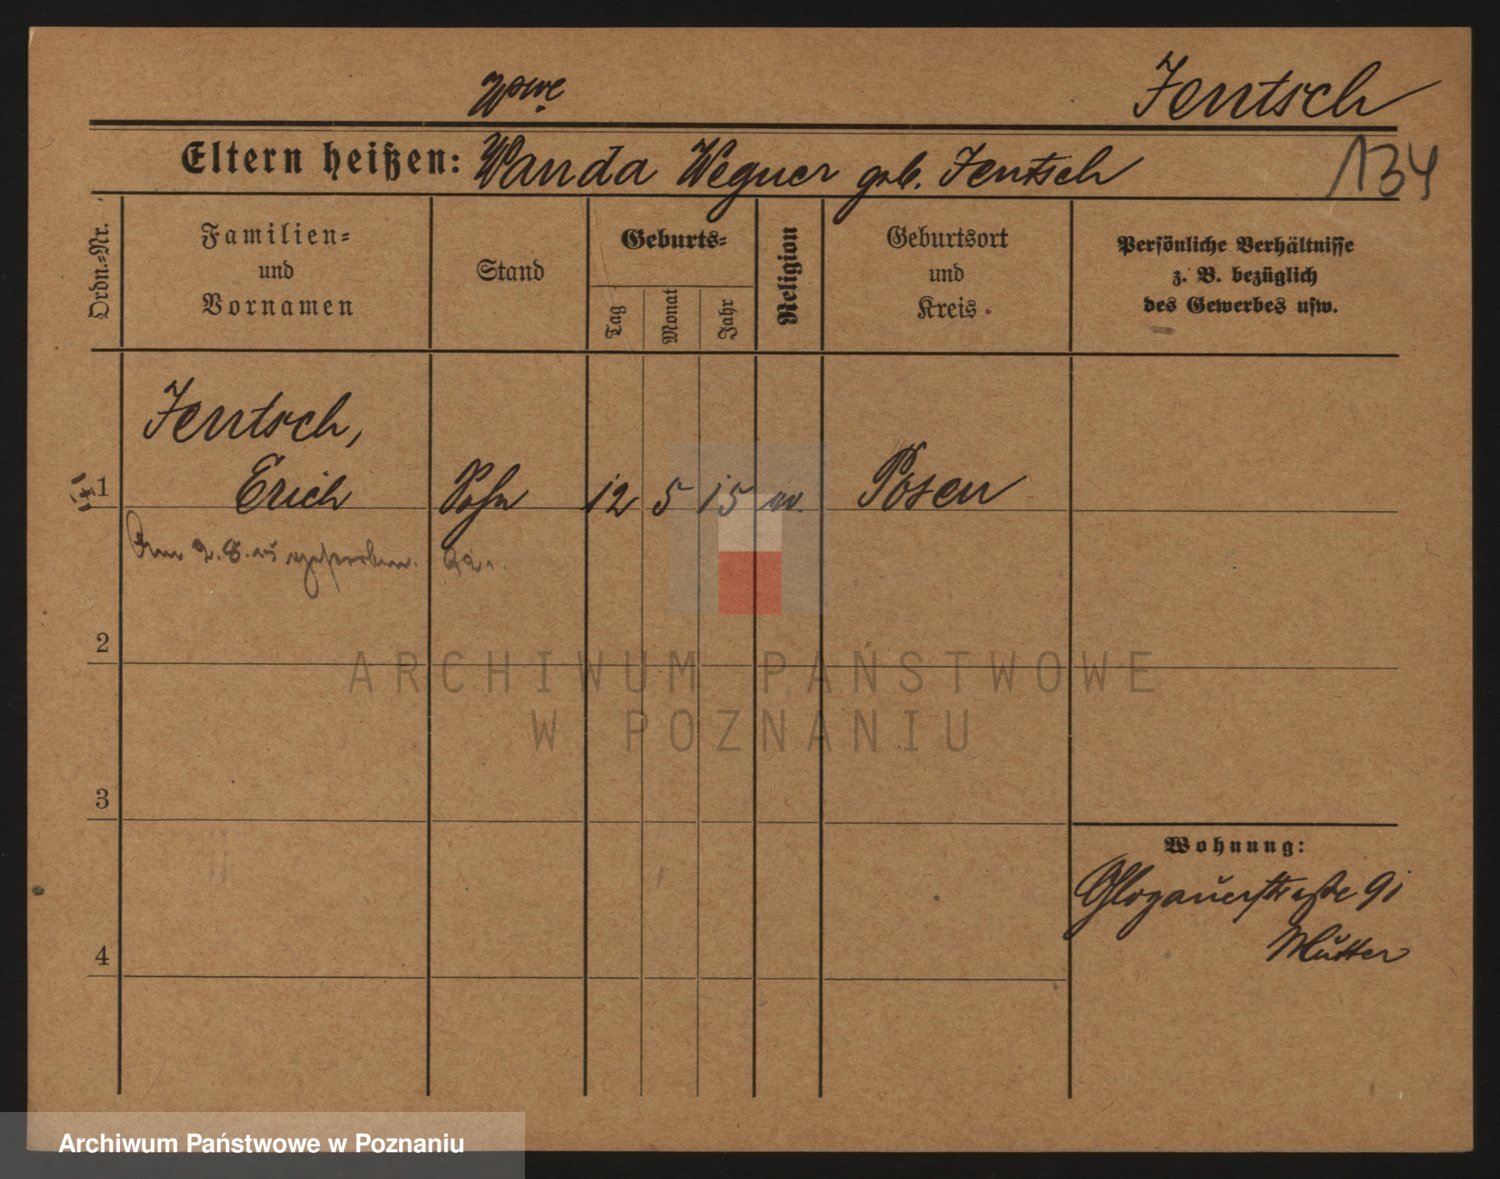 Wwe
Jentsch
Eltern heißen: Wanda Wegner geb. Jentsch
134
Ordn.=Nr.
Familien=
und
Vornamen
Stand
Geburts=
Tag
Monat
Jahr
Religion
Geburtsort
und
Kreis
Persönliche Verhältnisse
z. B. bezüglich
des Gewerbes usw.
Jentsch,
1 Erich Sohn 12 5 15 Posen
Am 2.8.15 gestorben.
2
ARCHIWUM PAŃSTWOWE
W POZNANIU
3
Wohnung:
Glogauerstraße 91
Mutter
4
Archiwum Państwowe w Poznaniu